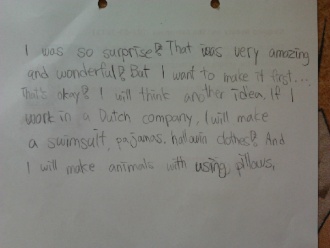 I was so surprise! That was very amazing
and wonderful! But I want to make it first...
That's okay? I will think another idea. If I
work in a Dutch company, I will make
a swimsuit, pajamas, hallowin clothes! And
I will make animals with using pillows.